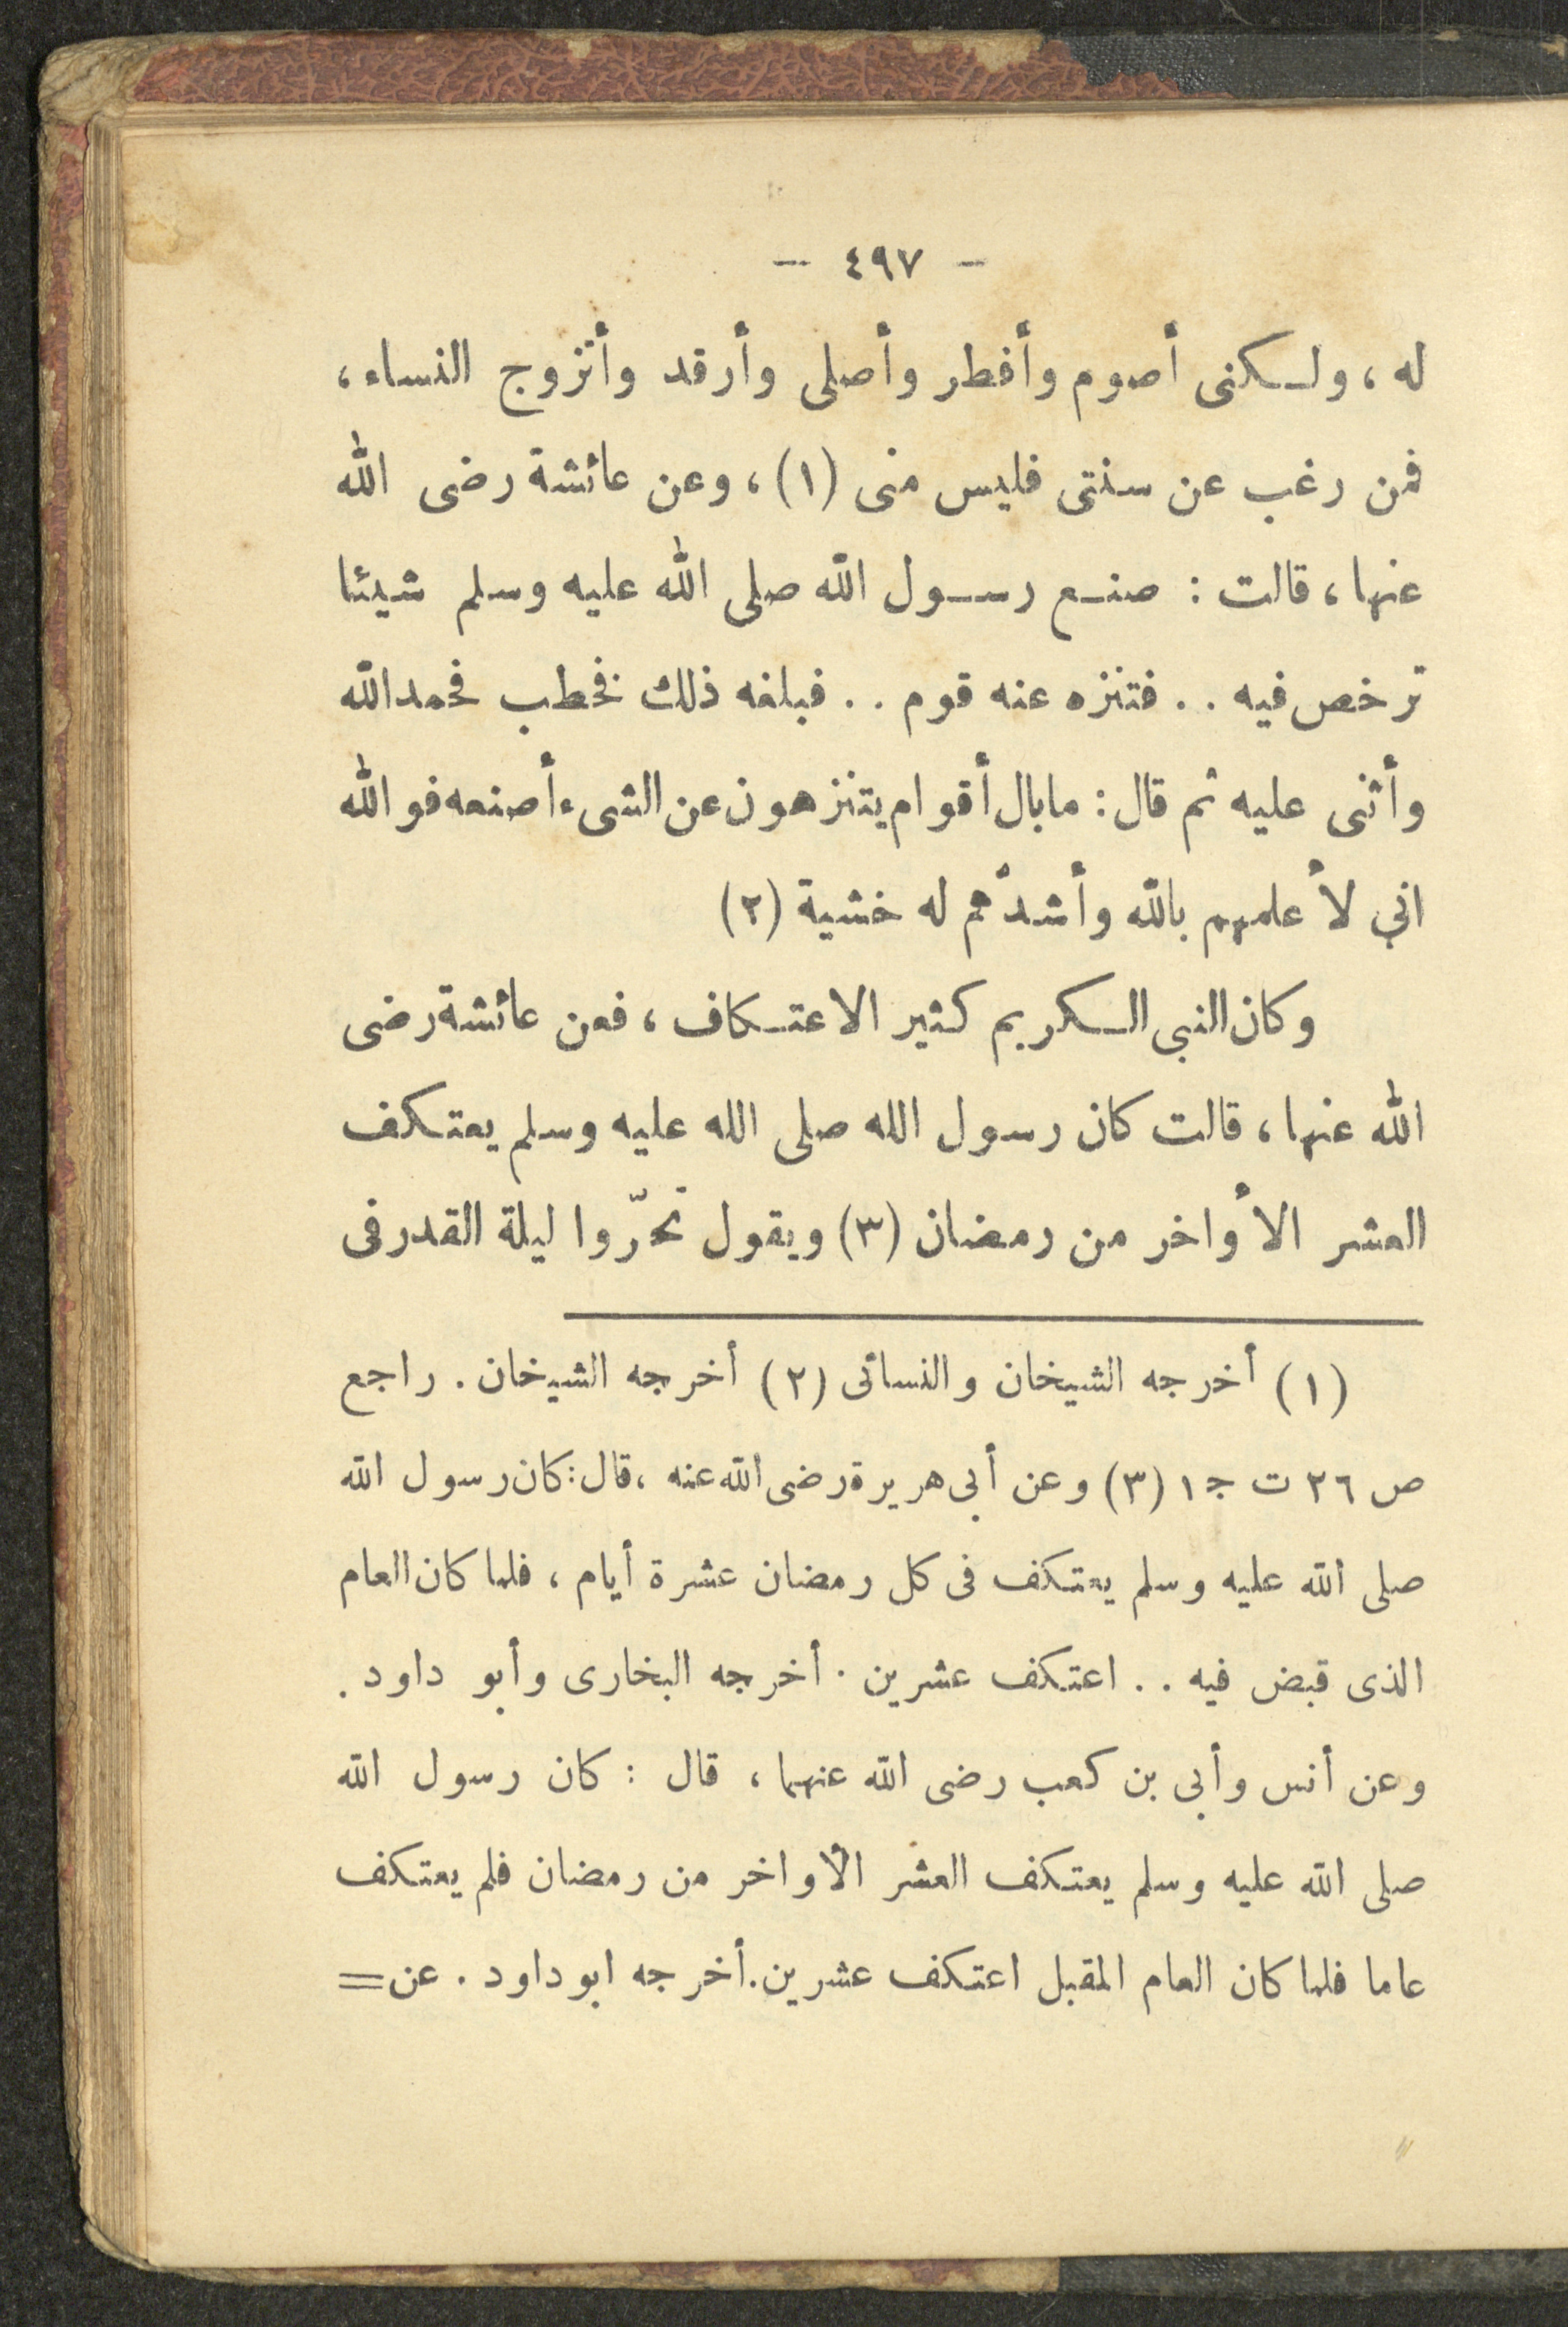 — ٤٩٧ —
له ، ولكنى أصوم وأفطر وأصلى وأرقد وأتزوج النساء ،
فمن رغب عن سنتى فليس منى (١) ، وعن عائشة رضى الله
عنها ، قالت : صنع رسول الله صلى الله عليه وسلم شيئا
ترخص فيه . . فتنزه عنه قوم . . فبلغه ذلك فخطب فحمد الله
وأثنى عليه ثم قال : ما بال أقوام يتنزهون عن الشىء أصنعه فو الله
اني لأعلمهم بالله وأشدهم له خشية (٢)
وكان النبى الكريم كثير الاعتكاف ، فعن عائشة رضى
الله عنها ، قالت كان رسول الله صلى الله عليه وسلم يعتكف
العشر الأواخر من رمضان (٣) ويقول تحرّوا ليلة القدر فى
(١) أخرجه الشيخان والنسائى (٢) أخرجه الشيخان . راجع
ص ٢٦ ت ج ١ (٣) وعن أبى هريرة رضى الله عنه ، قال : كان رسول الله
صلى الله عليه وسلم يعتكف فى كل رمضان عشرة أيام ، فلما كان العام
الذى قبض فيه . . اعتكف عشرين . أخرجه البخارى وأبو داود .
وعن أنس وأبي بن كعب رضى الله عنهما ، قال : كان رسول الله
صلى الله عليه وسلم يعتكف العشر الأواخر من رمضان فلم يعتكف
عاما فلما كان العام المقبل اعتكف عشرين . أخرجه ابو داود . عن =